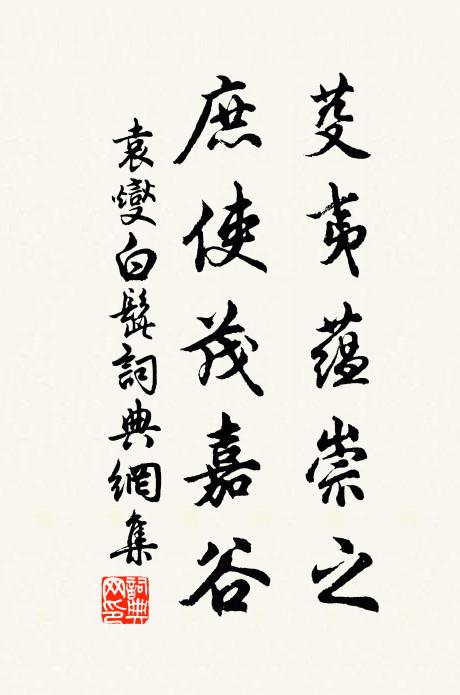 芟夷蕴崇之
庶使茂嘉谷
袁燮白髭詞典網集
詞典網印